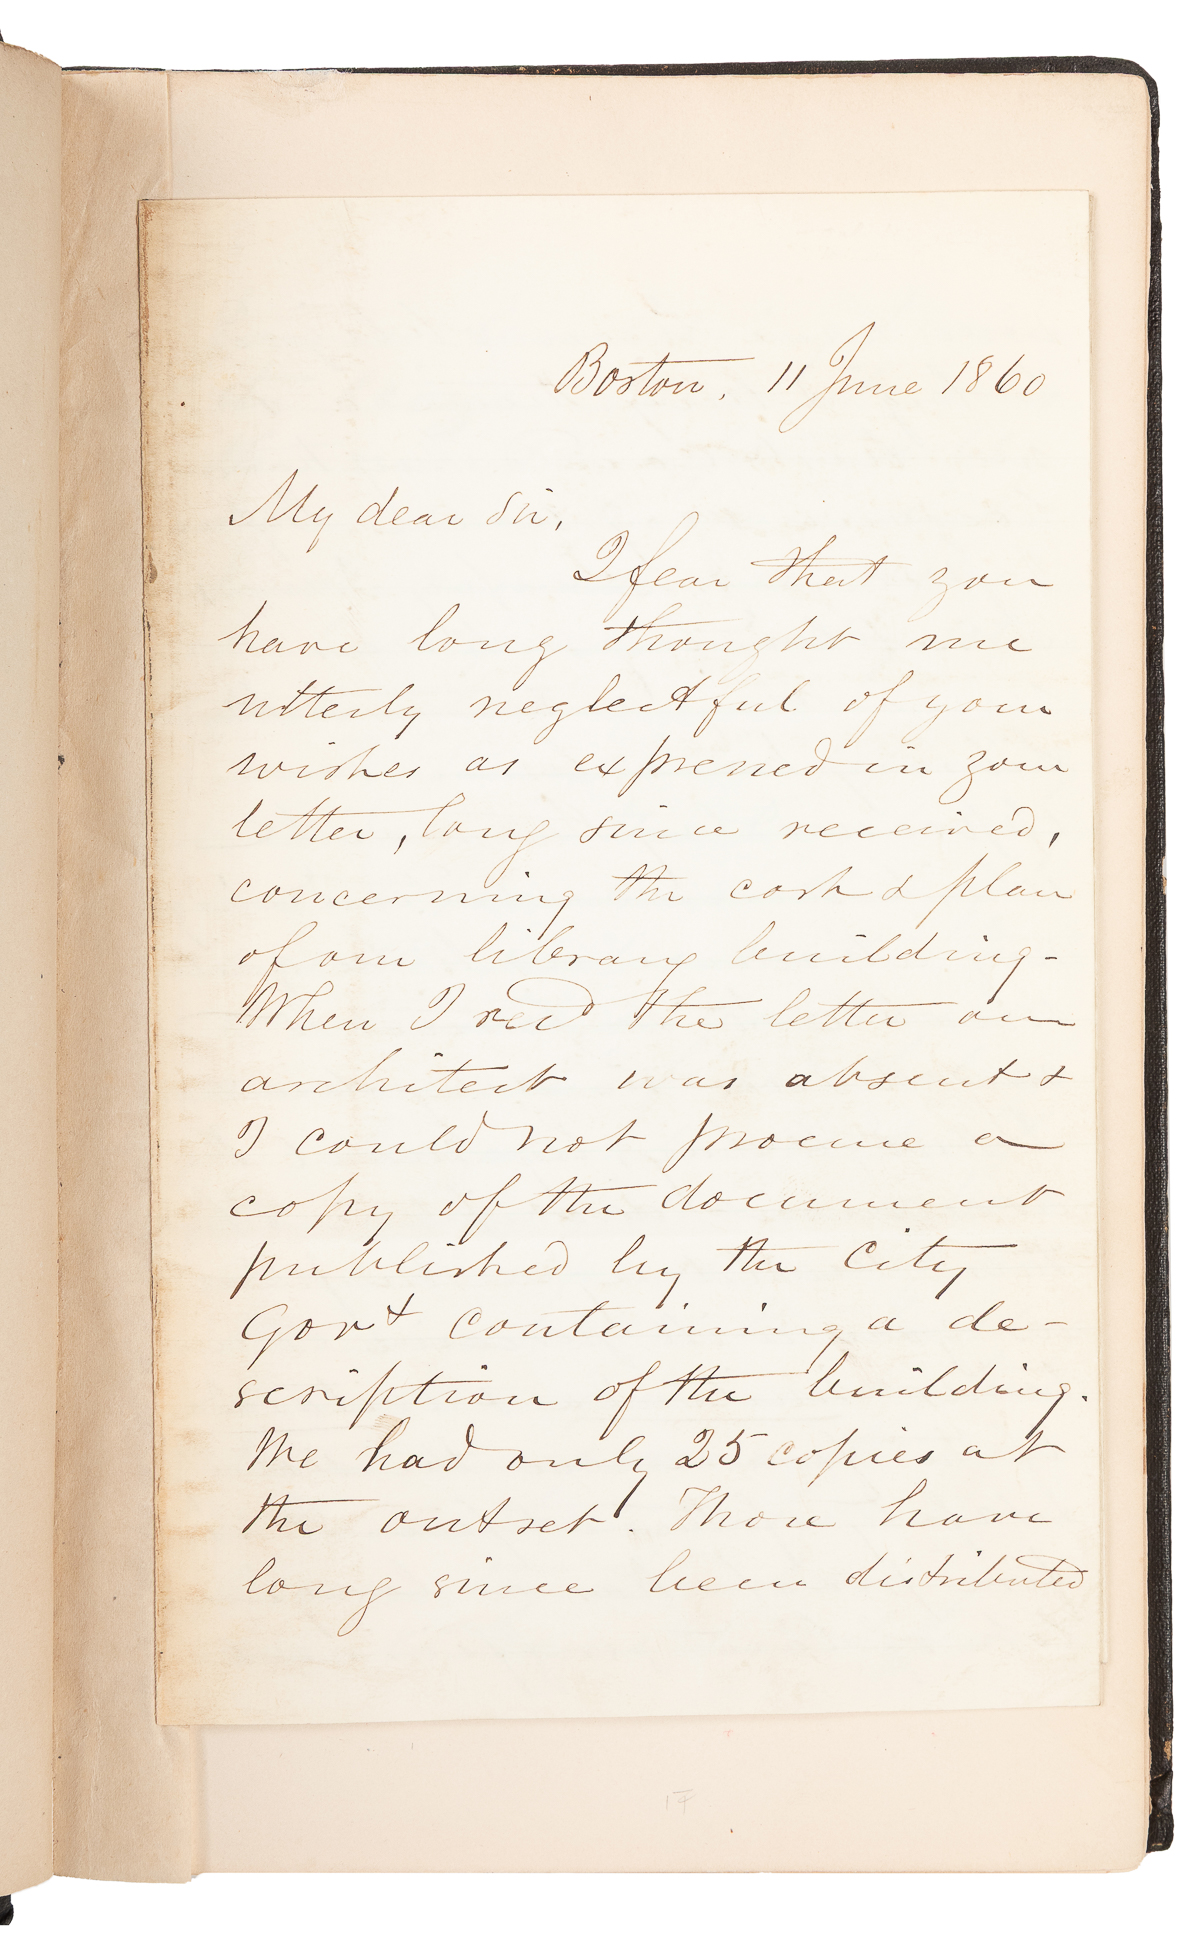 Boston, 11 June 1860
My dear Sir,
I fear that you
have long thought me
utterly neglectful of your
wishes as expressed in your
letter, long since received,
concerning the cost & plan
of our library building -
When I recd the letter our
architect was absent &
I could not procure a
copy of the document
published by the City
Govt containing a de-
scription of the building.
We had only 25 copies at
the outset. Those have
long since been distributed
17